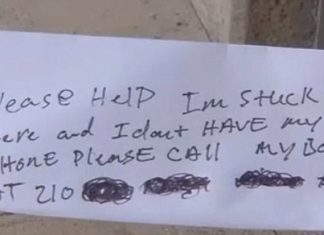 lease HelP Im STUCK
ere and I dont HAVE my
HONE Please CAll my Bo
AT 210